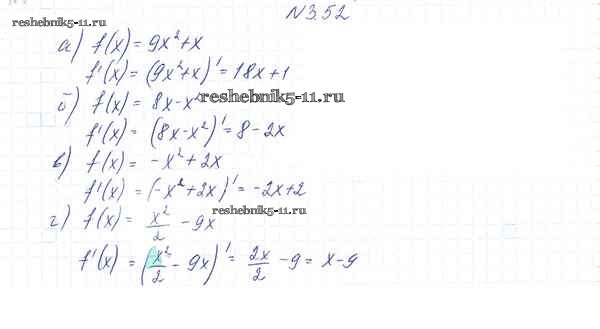 N 3.52
reshebnik5-11.ru
а) f(x) = 9x²+x
f'(x) = (9x²+x)' = 18x+1
б) f(x) = 8x-x² reshebnik5-11.ru
f'(x) = (8x-x²)' = 8-2x
в) f(x) = -x²+2x
f'(x) = (-x²+2x)' = -2x+2
reshebnik5-11.ru
г) f(x) = x²/2 - 9x
f'(x) = (x²/2 - 9x)' = 2x/2 - 9 = x-9